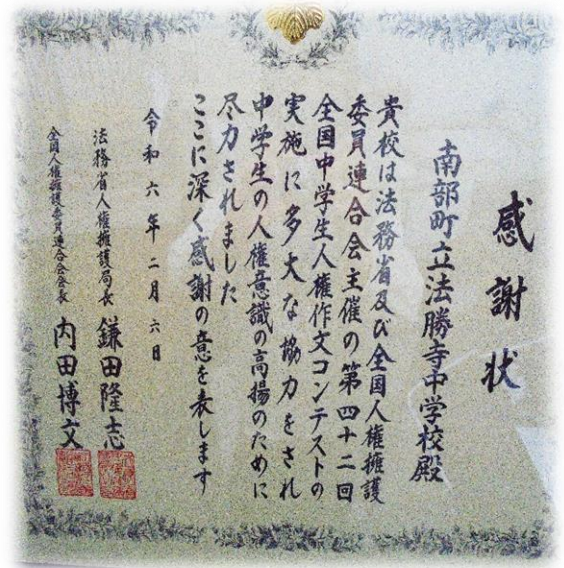 感謝状
南部町立法勝寺中学校殿
貴校は法務省及び全国人権擁護
委員連合会主催の第四十二回
全国中学生人権作文コンテストの
実施に多大な協力をされ
中学生の人権意識の高揚のために
尽力されました
ここに深く感謝の意を表します
令和六年二月六日
法務省人権擁護局長 鎌田隆志
全国人権擁護委員連合会会長 内田博文